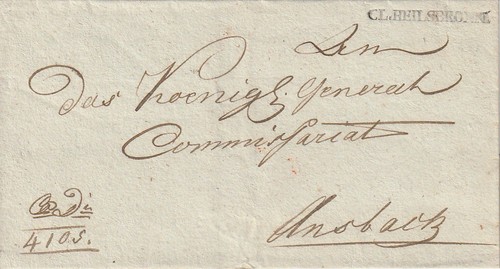 CL.HEILSBRONN.
An
das Koenigl. General
Commissariat
Ansbach
4105.